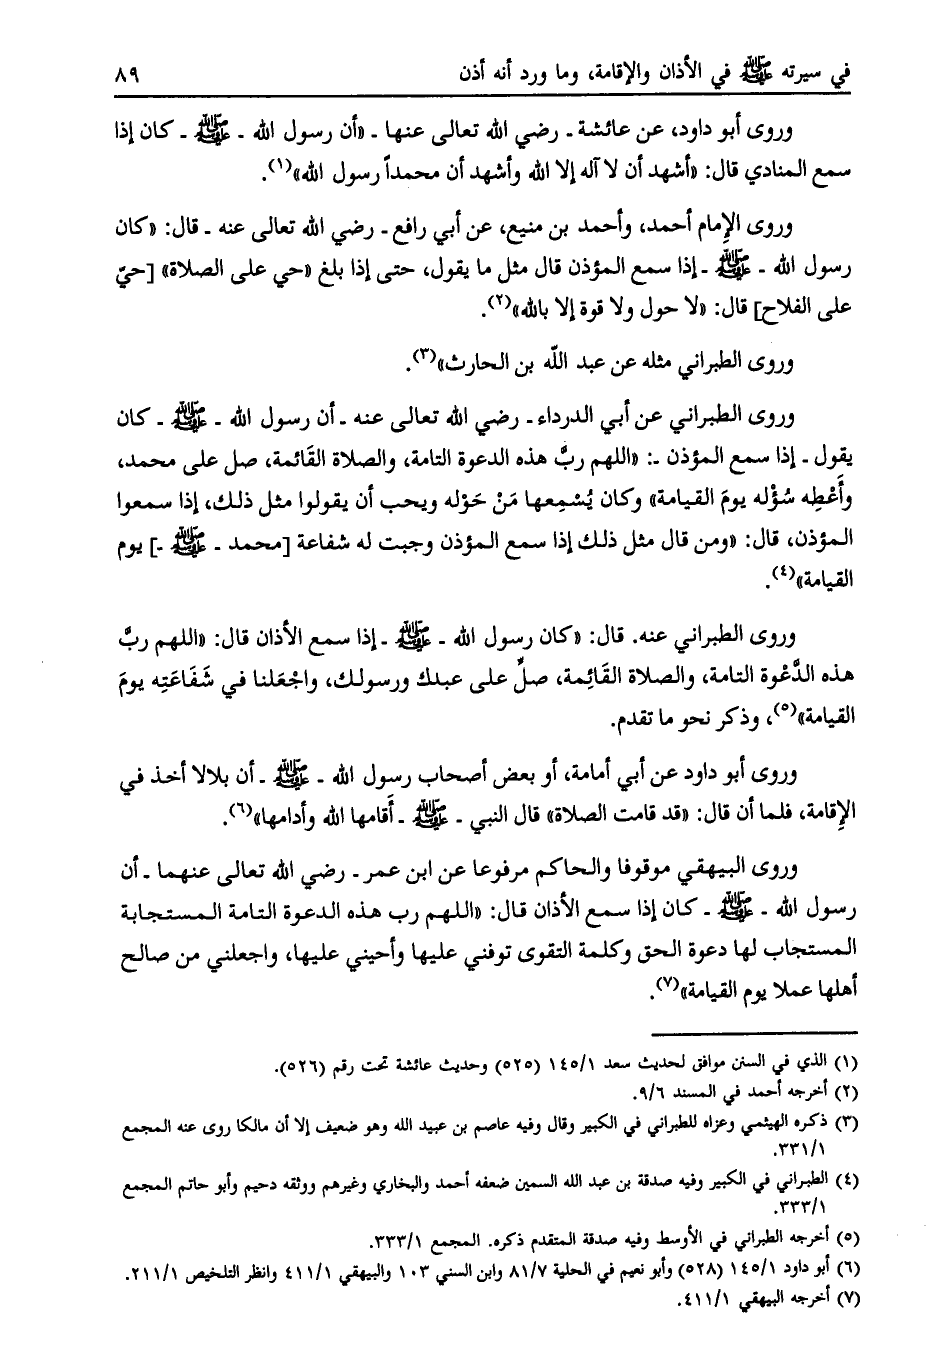 في سيرته ﷺ في الأذان والإقامة، وما ورد أنه أذن ٨٩
وروى أبو داود، عن عائشة ـ رضي الله تعالى عنها ـ «أن رسول الله ـ ﷺ ـ كان إذا
سمع المنادي قال: «أشهد أن لا آله إلا الله وأشهد أن محمداً رسول الله»(١).
وروى الإمام أحمد، وأحمد بن منيع، عن أبي رافع ـ رضي الله تعالى عنه ـ قال: «كان
رسول الله ـ ﷺ ـ إذا سمع المؤذن قال مثل ما يقول، حتى إذا بلغ «حي على الصلاة» [حيّ
على الفلاح] قال: «لا حول ولا قوة إلا بالله»(٢).
وروى الطبراني مثله عن عبد اللّه بن الحارث»(٣).
وروى الطبراني عن أبي الدرداء ـ رضي الله تعالى عنه ـ أن رسول الله ـ ﷺ ـ كان
يقول ـ إذا سمع المؤذن ـ: «اللهم ربَّ هذه الدعوة التامة، والصلاة القَائمة، صل على محمد،
وأَعْطِه سُؤْله يومَ القيامة» وكان يُسْمِعها مَنْ حَوْله ويحب أن يقولوا مثل ذلك، إذا سمعوا
المؤذن، قال: «ومن قال مثل ذلك إذا سمع المؤذن وجبت له شفاعة [محمد ـ ﷺ ـ] يوم
القيامة»(٤).
وروى الطبراني عنه. قال: «كان رسول الله ـ ﷺ ـ إذا سمع الأذان قال: «اللهم ربَّ
هذه الدَّعْوة التامة، والصلاة القَائِمة، صلِّ على عبدك ورسولك، واجْعَلنا في شَفَاعَتِه يومَ
القيامة»(٥)، وذكر نحو ما تقدم.
وروى أبو داود عن أبي أمامة، أو بعض أصحاب رسول الله ـ ﷺ ـ أن بلالا أخذ في
الإِقامة، فلما أن قال: «قد قامت الصلاة» قال النبي ـ ﷺ ـ أَقامها الله وأدامها»(٦).
وروى البيهقي موقوفا والحاكم مرفوعا عن ابن عمر ـ رضي الله تعالى عنهما ـ أن
رسول الله ـ ﷺ ـ كان إذا سمع الأذان قال: «اللهم رب هذه الدعوة التامة المستجابة
المستجاب لها دعوة الحق وكلمة التقوى توفني عليها وأحيني عليها، واجعلني من صالح
أهلها عملا يوم القيامة»(٧).
(١) الذي في السنن موافق لحديث سعد ١/ ١٤٥ (٥٢٥) وحديث عائشة تحت رقم (٥٢٦).
(٢) أخرجه أحمد في المسند ٩/٦.
(٣) ذكره الهيثمي وعزاه للطبراني في الكبير وقال وفيه عاصم بن عبيد الله وهو ضعيف إلا أن مالكا روى عنه المجمع
٣٣١/١.
(٤) الطبراني في الكبير وفيه صدقة بن عبد الله السمين ضعفه أحمد والبخاري وغيرهم ووثقه دحيم وأبو حاتم المجمع
٣٣٣/١.
(٥) أخرجه الطبراني في الأوسط وفيه صدقة المتقدم ذكره. المجمع ٣٣٣/١.
(٦) أبو داود ١٤٥/١ (٥٢٨) وأبو نعيم في الحلية ٨١/٧ وابن السني ١٠٣ والبيهقي ٤١١/١ وانظر التلخيص ٢١١/١.
(٧) أخرجه البيهقي ٤١١/١.